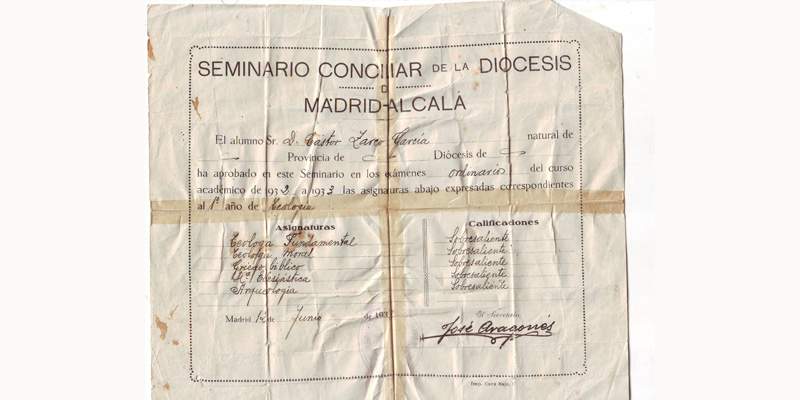 SEMINARIO CONCILIAR DE LA DIOCESIS
D
MADRID-ALCALÁ
El alumno Sr. D. Castor Zarco García natural de
Provincia de Diócesis de
ha aprobado en este Seminario en los exámenes ordinarios del curso
académico de 1932 a 1933 las asignauras abajo expresadas correspondientes
al 1º año de Teología
Asignaturas Calificaciones
Teologa Fundamental Sobresaliente
Teología Moral Sobresaliente
Griego bíblico Sobresaliente
Hª Eclesiástica Sobresaliente
Arqueología Sobresaliente
Madrid de Junio de 193
El Secretario,
José Aragonés
Imp. Cava Baja,